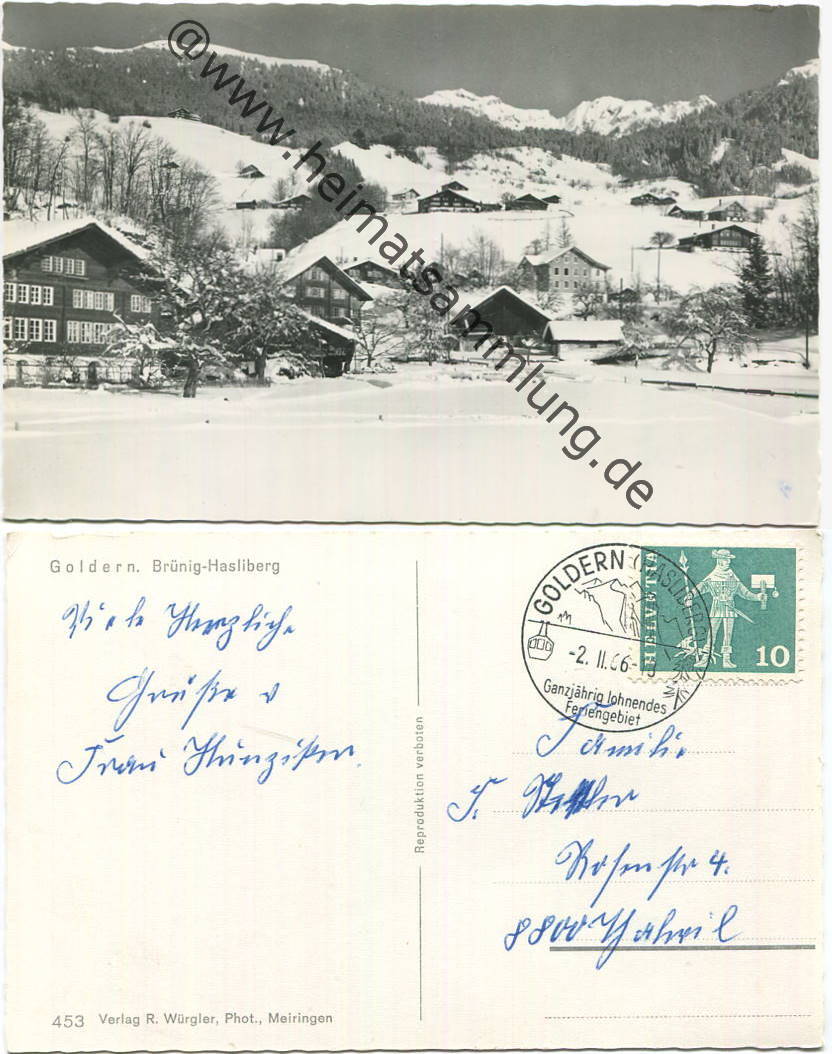 @www.heimatsammlung.de
Goldern. Brünig-Hasliberg
Viele Herzliche
Grüße v
Frau Hunziker.
Reproduktion verboten
453 Verlag R. Würgler, Phot., Meiringen
GOLDERN (HASLIBERG)
-2. II. 66-
Ganzjährig lohnendes
Feriengebiet
HELVETIA
10
Familie
F.
Rosenstr 4.
8800 Thalwil